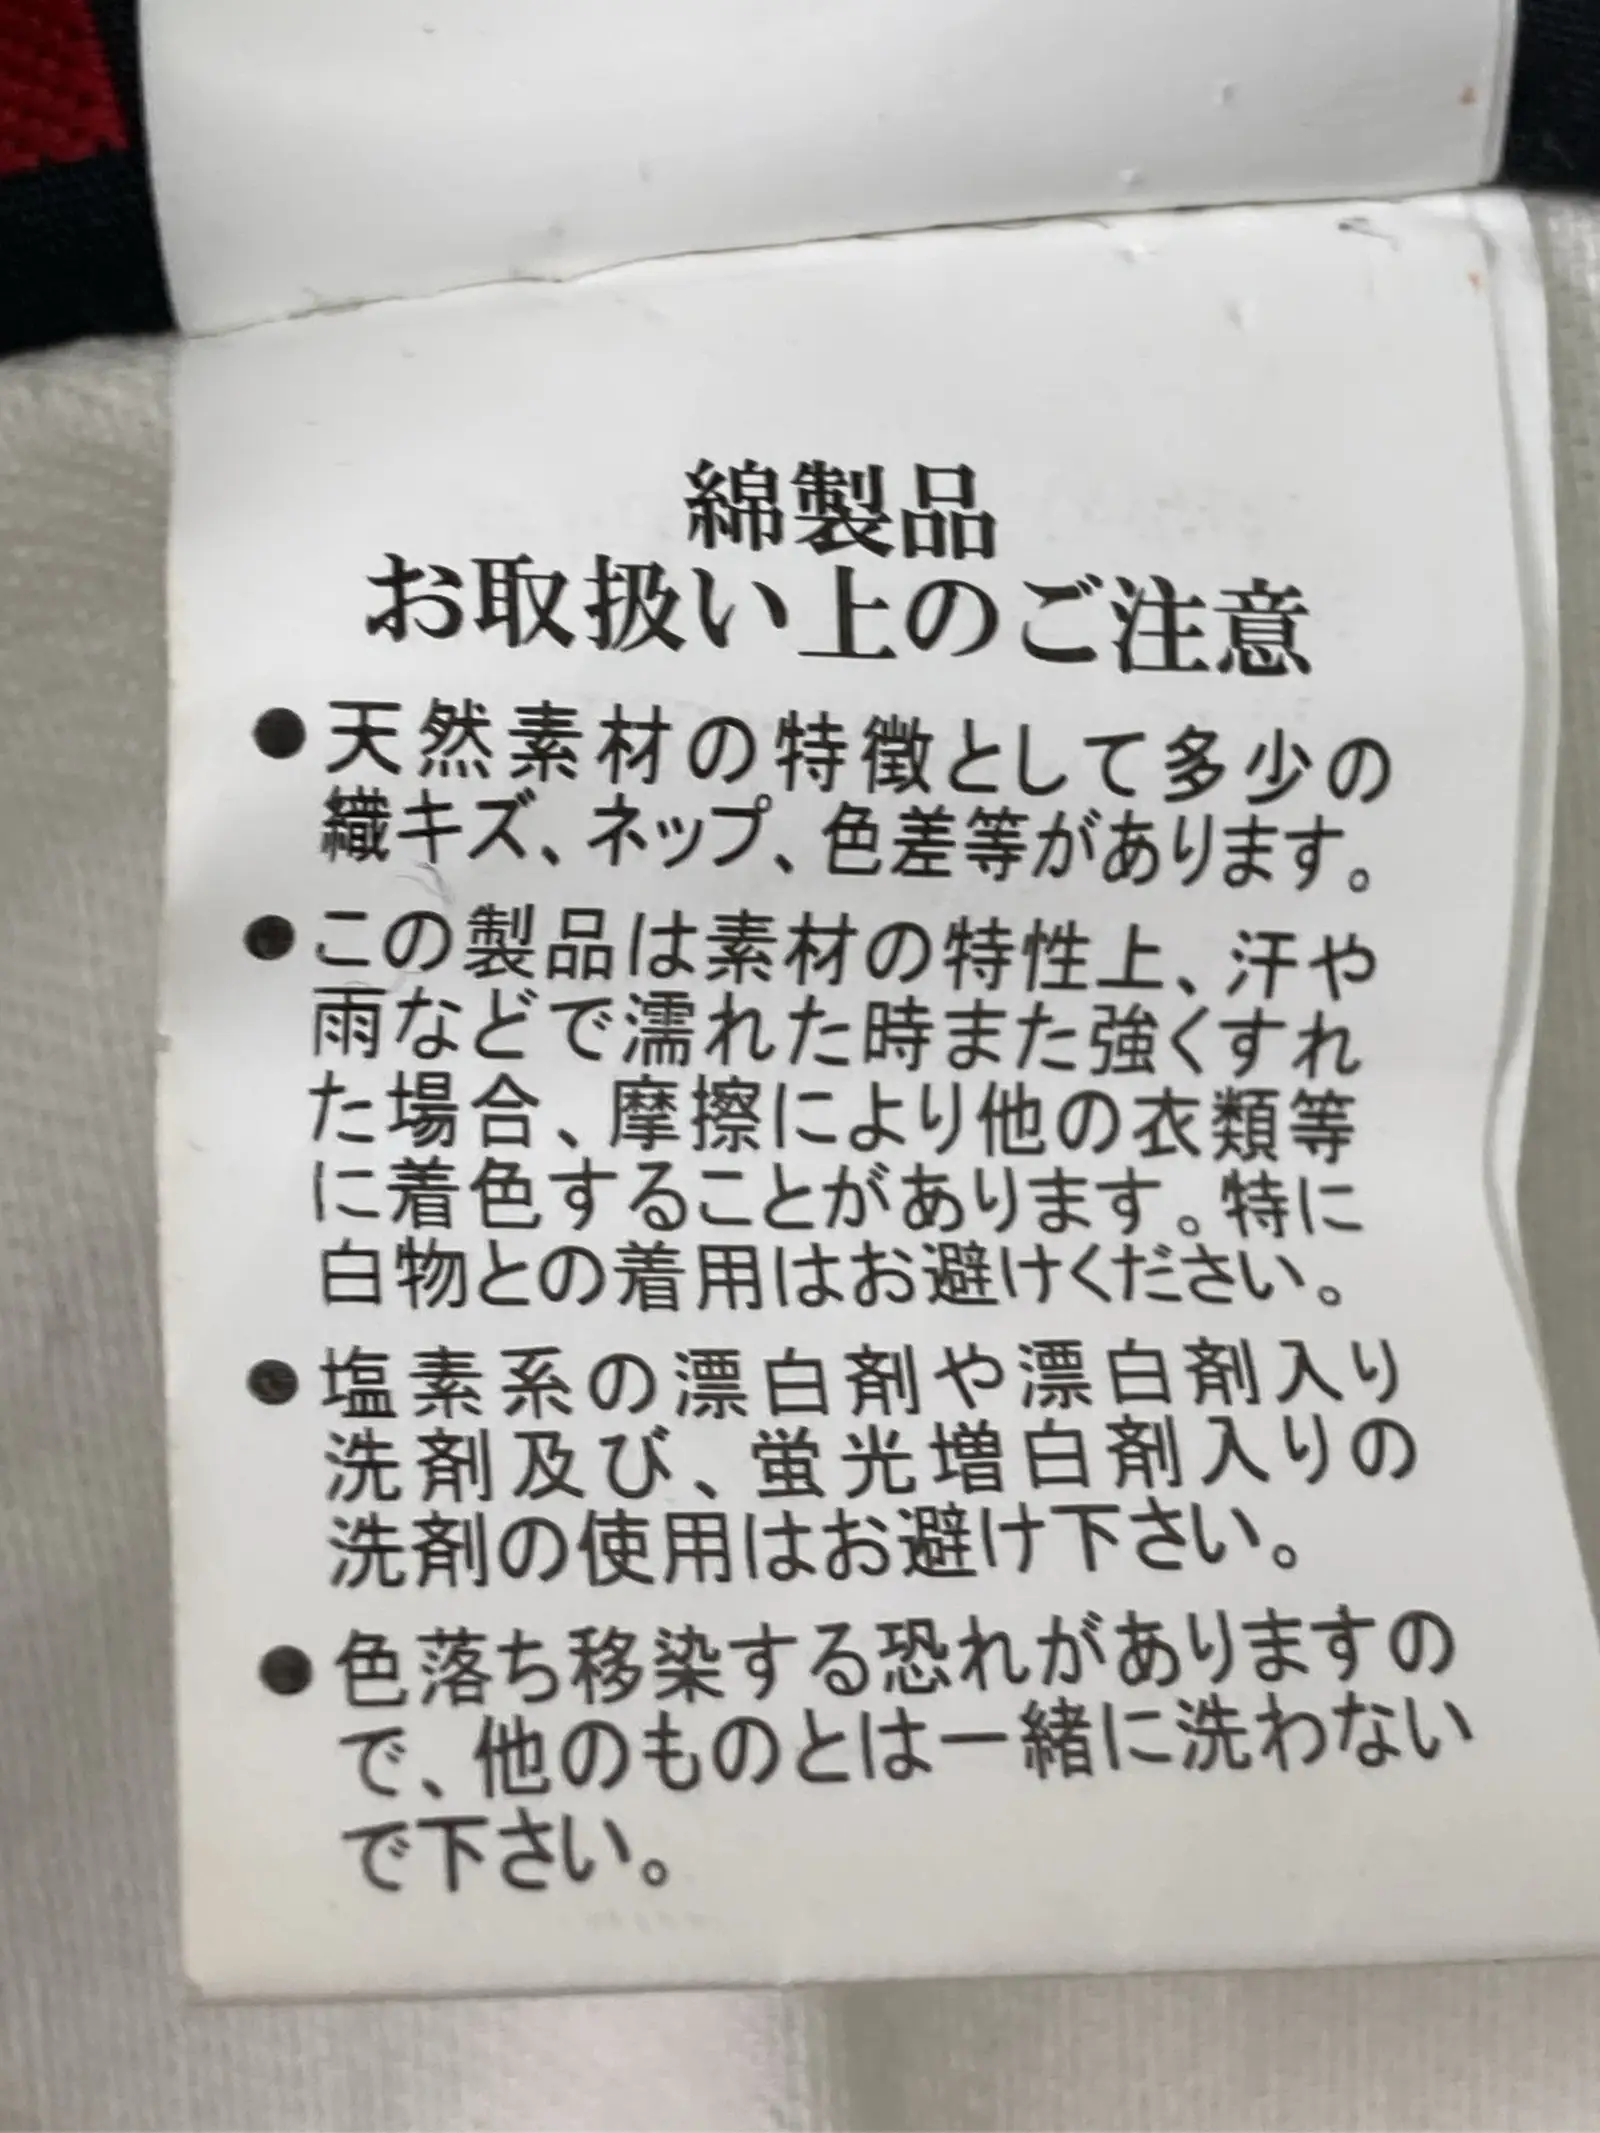 綿製品
お取扱い上のご注意
●天然素材の特徴として多少の
織キズ、ネップ、色差等があります。
●この製品は素材の特性上、汗や
雨などで濡れた時また強くすれ
た場合、摩擦により他の衣類等
に着色することがあります。特に
白物との着用はお避けください。
●塩素系の漂白剤や漂白剤入り
洗剤及び、蛍光増白剤入りの
洗剤の使用はお避け下さい。
●色落ち移染する恐れがありますの
で、他のものとは一緒に洗わない
で下さい。